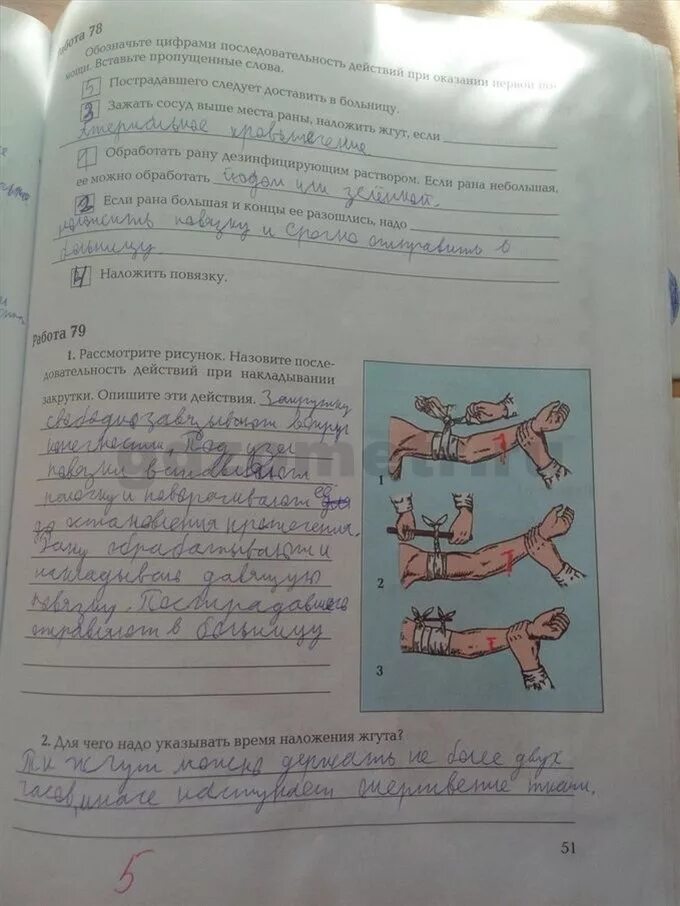 Работа 78
Обозначьте цифрами последовательность действий при оказании первой по-
мощи. Вставьте пропущенные слова.
5 Пострадавшего следует доставить в больницу.
3 Зажать сосуд выше места раны, наложить жгут, если
артериальное кровотечение
1 Обработать рану дезинфицирующим раствором. Если рана небольшая,
ее можно обработать йодом или зелёнкой.
2 Если рана большая и концы ее разошлись, надо
наложить повязку и срочно отправить в
больницу.
4 Наложить повязку.
Работа 79
1. Рассмотрите рисунок. Назовите после-
довательность действий при накладывании
закрутки. Опишите эти действия. Закрутку
свободно завязывают вокруг
конечности. Под узел
повязки вставляют
палочку и поворачивают её
до остановления кровотечения.
Рану обрабатывают и
накладывают давящую
повязку. Пострадавшего
отправляют в больницу
1
2
3
2. Для чего надо указывать время наложения жгута?
Тк жгут можно держать не более двух
часов, иначе наступает омертвение ткани.
51
5